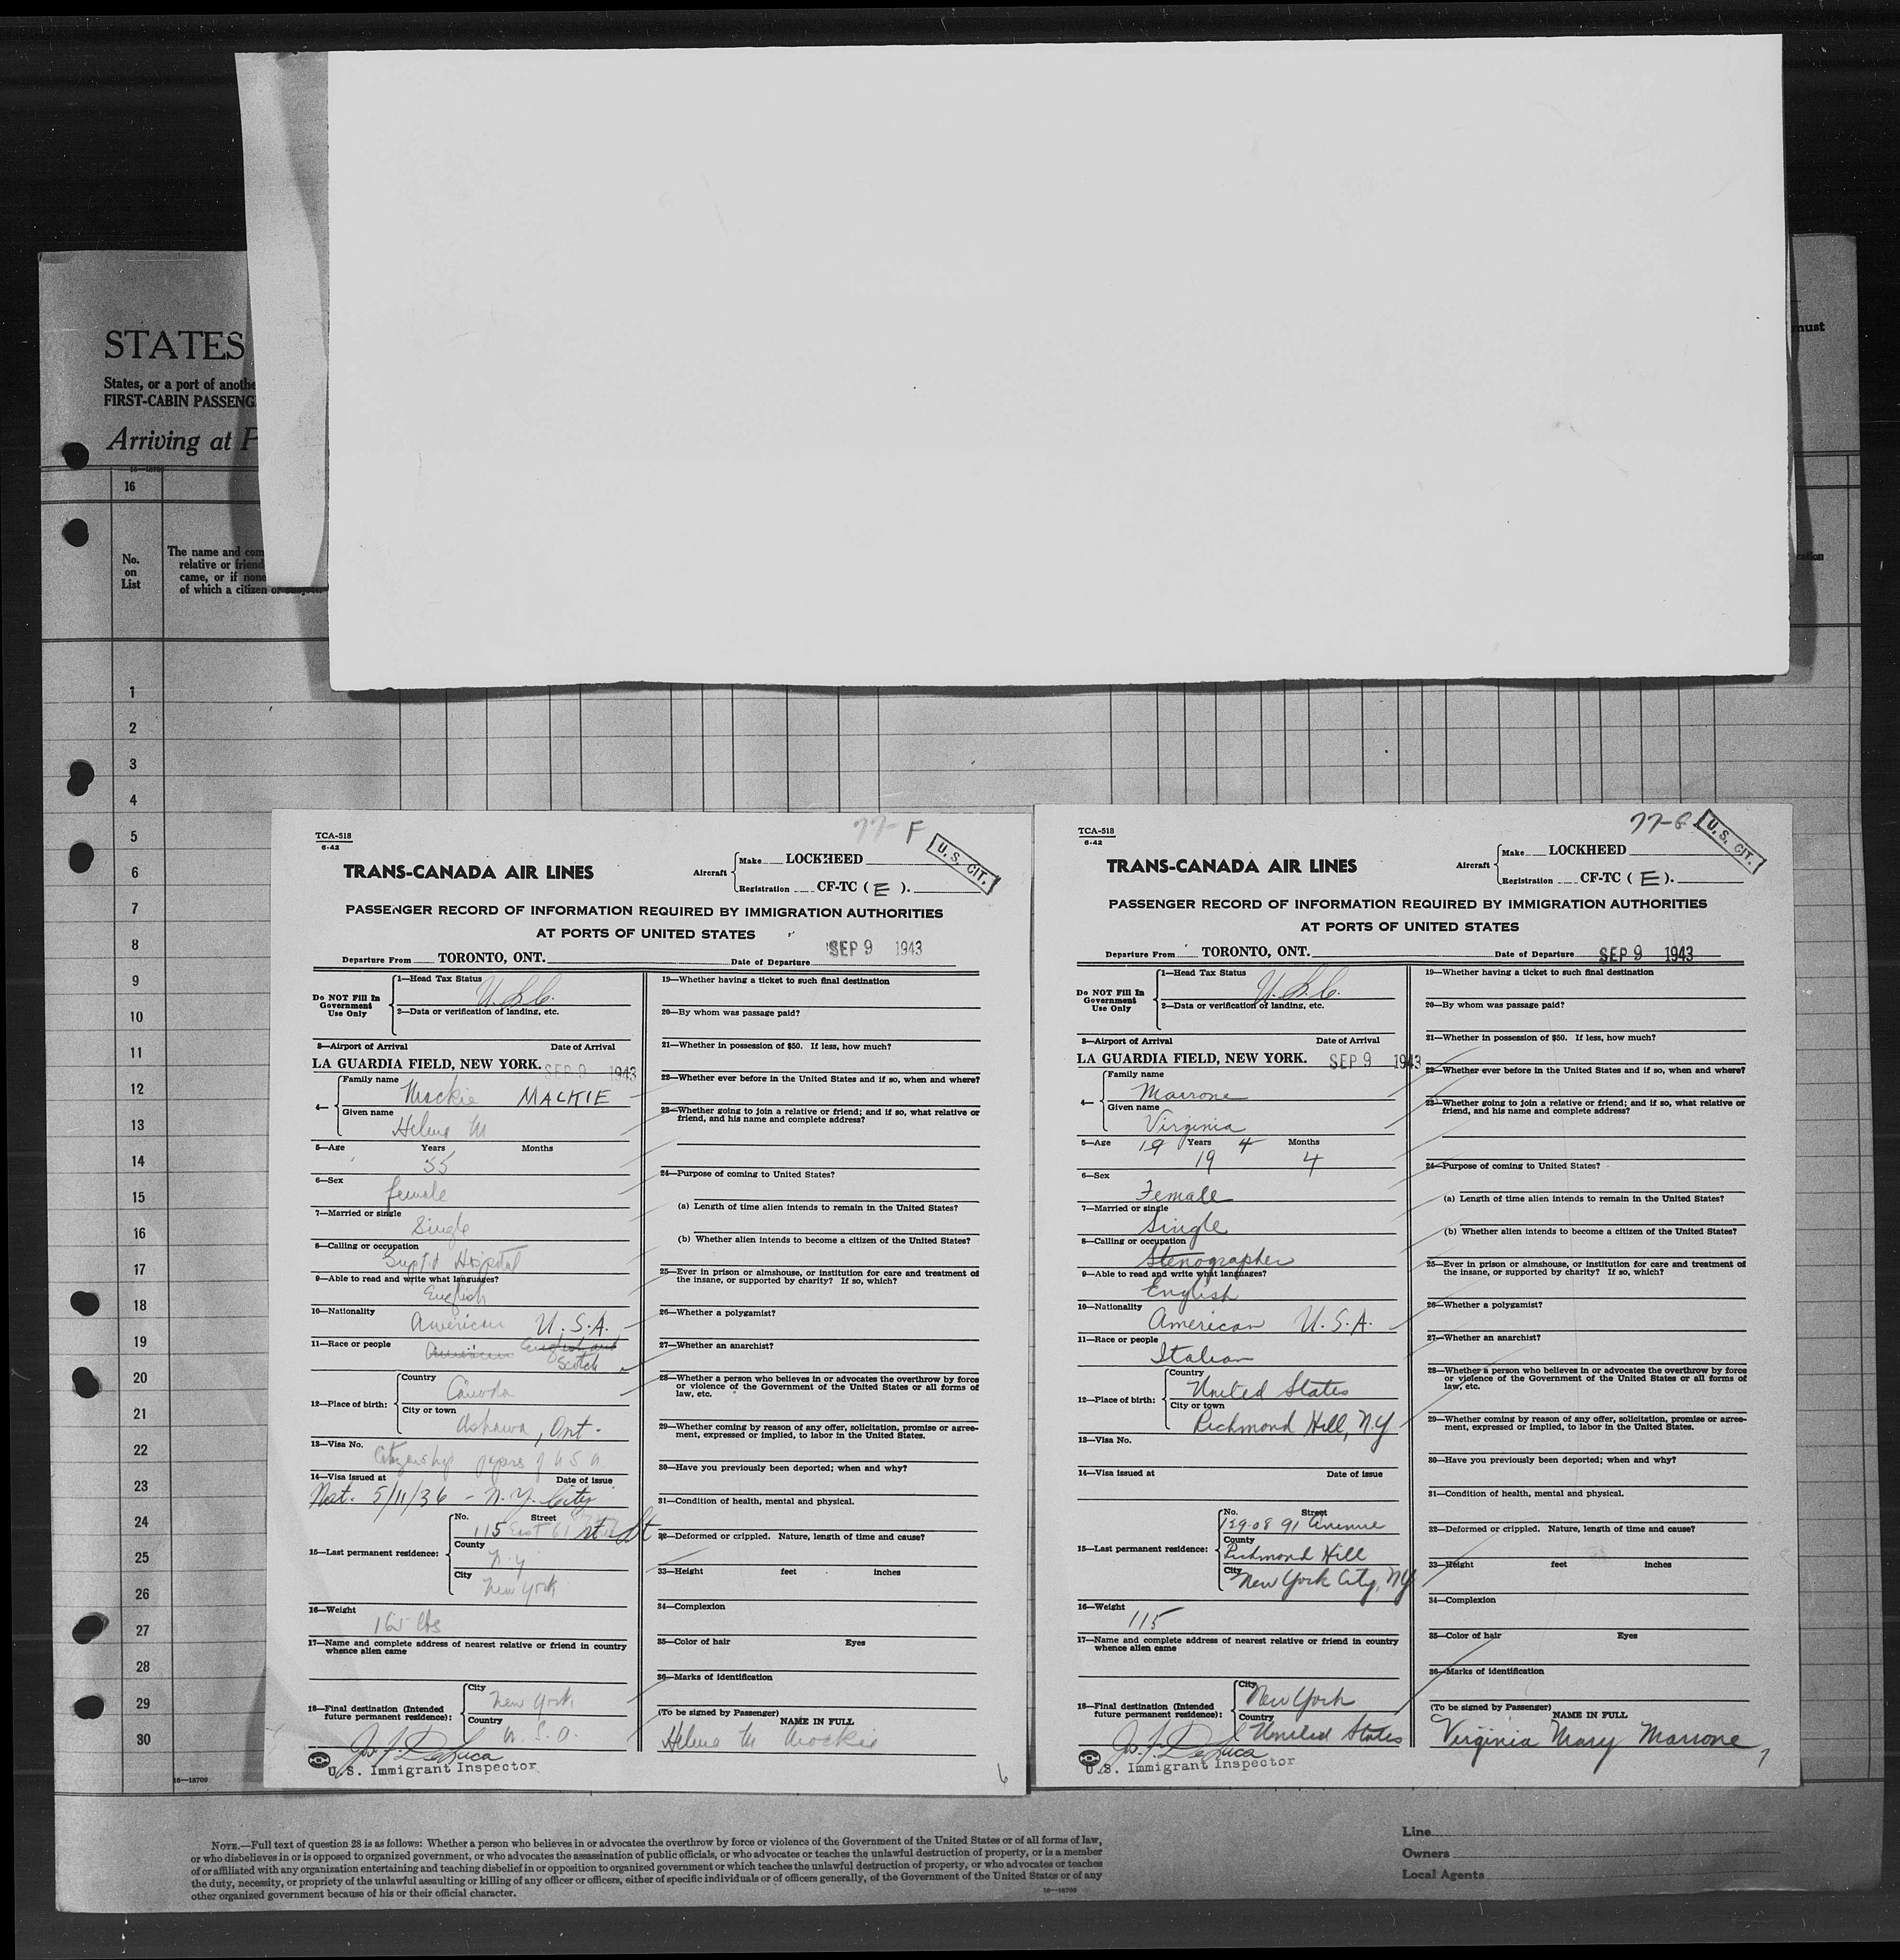 STATES
States, or a port of anothe
FIRST-CABIN PASSENG
Arriving at P
must
16
No.
on
List
The name and com
relative or friend
came, or if none
of which a citizen or subject.
1
2
3
4
5
6
7
8
9
10
11
12
13
14
15
16
17
18
19
20
21
22
23
24
25
26
27
28
29
30
16—18709
TCA-518
6-42
77-F
U.S. CIT.
TRANS-CANADA AIR LINES
Aircraft
Make LOCKHEED
Registration CF-TC ( E ).
PASSENGER RECORD OF INFORMATION REQUIRED BY IMMIGRATION AUTHORITIES
AT PORTS OF UNITED STATES
Departure From TORONTO, ONT. Date of Departure SEP 9 1943
Do NOT Fill In
Government
Use Only
1—Head Tax Status
U.S.C.
2—Data or verification of landing, etc.
3—Airport of Arrival Date of Arrival
LA GUARDIA FIELD, NEW YORK. SEP 9 1943
4—
Family name
Mackie MACKIE
Given name
Helena M
5—Age Years Months
55
6—Sex
female
7—Married or single
Single
8—Calling or occupation
Supt'd Hospital
9—Able to read and write what languages?
English
10—Nationality
American U.S.A.
11—Race or people American English and
Scotch
12—Place of birth:
Country
Canada
City or town
Oshawa, Ont.
13—Visa No.
Citizenship papers of U S A
14—Visa issued at Date of issue
Nat. 5/11/36 - N.Y. City
15—Last permanent residence:
No. Street
115 East 61 st St
County
N.Y
City
New York
16—Weight
165 lbs
17—Name and complete address of nearest relative or friend in country
whence alien came
18—Final destination (Intended
future permanent residence):
City
New York
Country
U.S.A.
Jos. J. DeLuca
U.S. Immigrant Inspector
19—Whether having a ticket to such final destination
20—By whom was passage paid?
21—Whether in possession of $50. If less, how much?
22—Whether ever before in the United States and if so, when and where?
23—Whether going to join a relative or friend; and if so, what relative or
friend, and his name and complete address?
24—Purpose of coming to United States?
(a) Length of time alien intends to remain in the United States?
(b) Whether alien intends to become a citizen of the United States?
25—Ever in prison or almshouse, or institution for care and treatment of
the insane, or supported by charity? If so, which?
26—Whether a polygamist?
27—Whether an anarchist?
28—Whether a person who believes in or advocates the overthrow by force
or violence of the Government of the United States or all forms of
law, etc.
29—Whether coming by reason of any offer, solicitation, promise or agree-
ment, expressed or implied, to labor in the United States.
30—Have you previously been deported; when and why?
31—Condition of health, mental and physical.
32—Deformed or crippled. Nature, length of time and cause?
33—Height feet inches
34—Complexion
35—Color of hair Eyes
36—Marks of identification
(To be signed by Passenger)
NAME IN FULL
Helena M Mackie
6
TCA-518
6-42
U.S. CIT.
TRANS-CANADA AIR LINES
Aircraft
Make LOCKHEED
Registration CF-TC ( E ).
PASSENGER RECORD OF INFORMATION REQUIRED BY IMMIGRATION AUTHORITIES
AT PORTS OF UNITED STATES
Departure From TORONTO, ONT. Date of Departure SEP 9 1943
Do NOT Fill In
Government
Use Only
1—Head Tax Status
U.S.C.
2—Data or verification of landing, etc.
3—Airport of Arrival Date of Arrival
LA GUARDIA FIELD, NEW YORK. SEP 9 1943
4—
Family name
Marrone
Given name
Virginia
5—Age 19 Years 4 Months
19 4
6—Sex
Female
7—Married or single
Single
8—Calling or occupation
Stenographer
9—Able to read and write what languages?
English
10—Nationality
American U.S.A.
11—Race or people
Italian
12—Place of birth:
Country
United States
City or town
Richmond Hill, N.Y.
13—Visa No.
14—Visa issued at Date of issue
15—Last permanent residence:
No. Street
129-08 91 Avenue
County
Richmond Hill
City
New York City, NY
16—Weight
115
17—Name and complete address of nearest relative or friend in country
whence alien came
18—Final destination (Intended
future permanent residence):
City
New York
Country
United States
Jos. J. DeLuca
U.S. Immigrant Inspector
19—Whether having a ticket to such final destination
20—By whom was passage paid?
21—Whether in possession of $50. If less, how much?
22—Whether ever before in the United States and if so, when and where?
23—Whether going to join a relative or friend; and if so, what relative or
friend, and his name and complete address?
24—Purpose of coming to United States?
(a) Length of time alien intends to remain in the United States?
(b) Whether alien intends to become a citizen of the United States?
25—Ever in prison or almshouse, or institution for care and treatment of
the insane, or supported by charity? If so, which?
26—Whether a polygamist?
27—Whether an anarchist?
28—Whether a person who believes in or advocates the overthrow by force
or violence of the Government of the United States or all forms of
law, etc.
29—Whether coming by reason of any offer, solicitation, promise or agree-
ment, expressed or implied, to labor in the United States.
30—Have you previously been deported; when and why?
31—Condition of health, mental and physical.
32—Deformed or crippled. Nature, length of time and cause?
33—Height feet inches
34—Complexion
35—Color of hair Eyes
36—Marks of identification
(To be signed by Passenger)
NAME IN FULL
Virginia Mary Marrone
7
NOTE.—Full text of question 28 is as follows: Whether a person who believes in or advocates the overthrow by force or violence of the Government of the United States or of all forms of law,
or who disbelieves in or is opposed to organized government, or who advocates the assassination of public officials, or who advocates or teaches the unlawful destruction of property, or is a member
of or affiliated with any organization entertaining and teaching disbelief in or opposition to organized government or which teaches the unlawful destruction of property, or who advocates or teaches
the duty, necessity, or propriety of the unlawful assaulting or killing of any officer or officers, either of specific individuals or of officers generally, of the Government of the United States or of any
other organized government because of his or their official character.
16—18709
Line
Owners
Local Agents